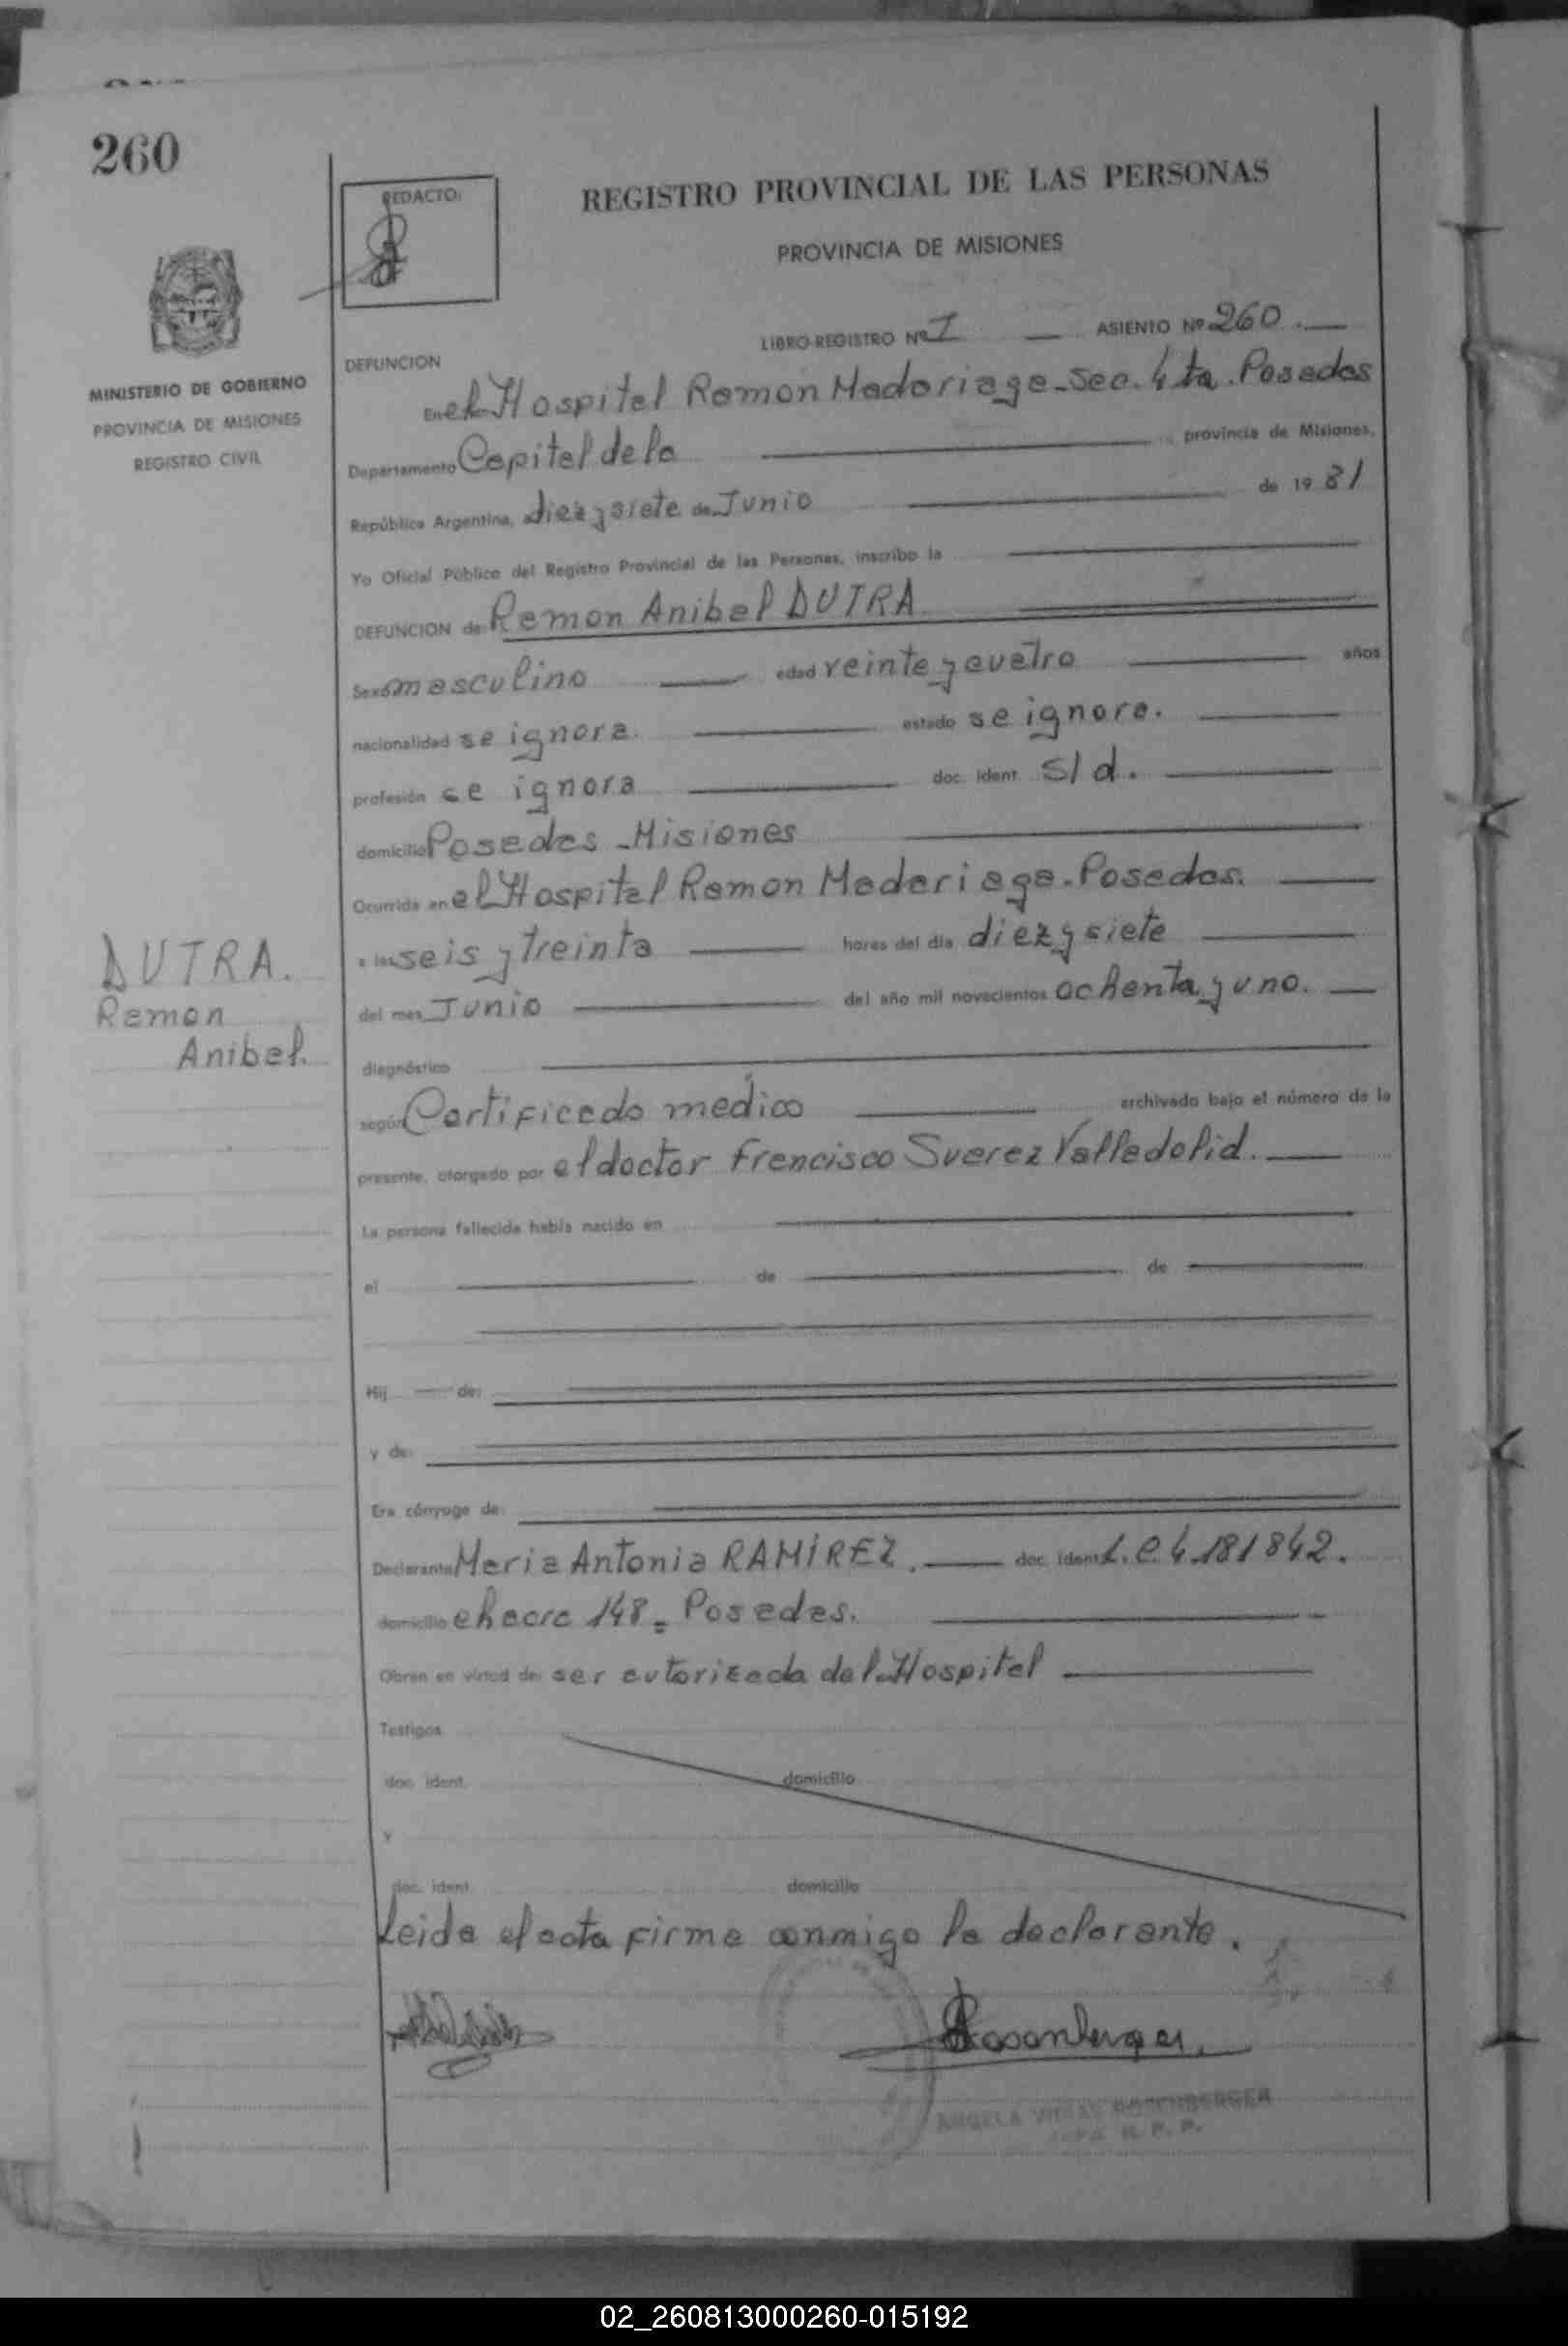 260
REDACTO:
REGISTRO PROVINCIAL DE LAS PERSONAS
PROVINCIA DE MISIONES
LIBRO-REGISTRO Nº I ASIENTO Nº 260.
MINISTERIO DE GOBIERNO
PROVINCIA DE MISIONES
REGISTRO CIVIL
DEFUNCION
En el Hospital Ramon Madariaga - Sec. 4ta. Posadas
Departamento Capital de la provincia de Misiones,
República Argentina, a diez y siete de Junio de 1981
Yo Oficial Público del Registro Provincial de las Personas, inscribo la
DEFUNCION de: Ramon Anibal DUTRA
Sexo masculino edad veinte y cuatro años
nacionalidad se ignora. estado se ignora.
profesión se ignora doc. ident. S/d.
domicilio Posadas - Misiones
Ocurrida en el Hospital Ramon Madariaga - Posadas.
a las seis y treinta horas del día diez y siete
del mes Junio del año mil novecientos ochenta y uno.
diagnóstico
según Certificado medico archivado bajo el número de la
presente, otorgado por el doctor Francisco Suarez Valladolid.
La persona fallecida había nacido en
el de de
Hij de:
y de:
Era cónyuge de:
Declarante Maria Antonia RAMIREZ. doc. ident L.C 4.181842.
domicilio chacra 148 = Posadas.
Obran en virtud de: ser autorizada del Hospital
Testigos
doc. ident. domicilio
y
doc. ident. domicilio
Leida el acta firma conmigo la declarante.
Rosenberger
ANGELA ROSENBERGER
R. P. P.
DUTRA.
Ramon
Anibal.
02_260813000260-015192